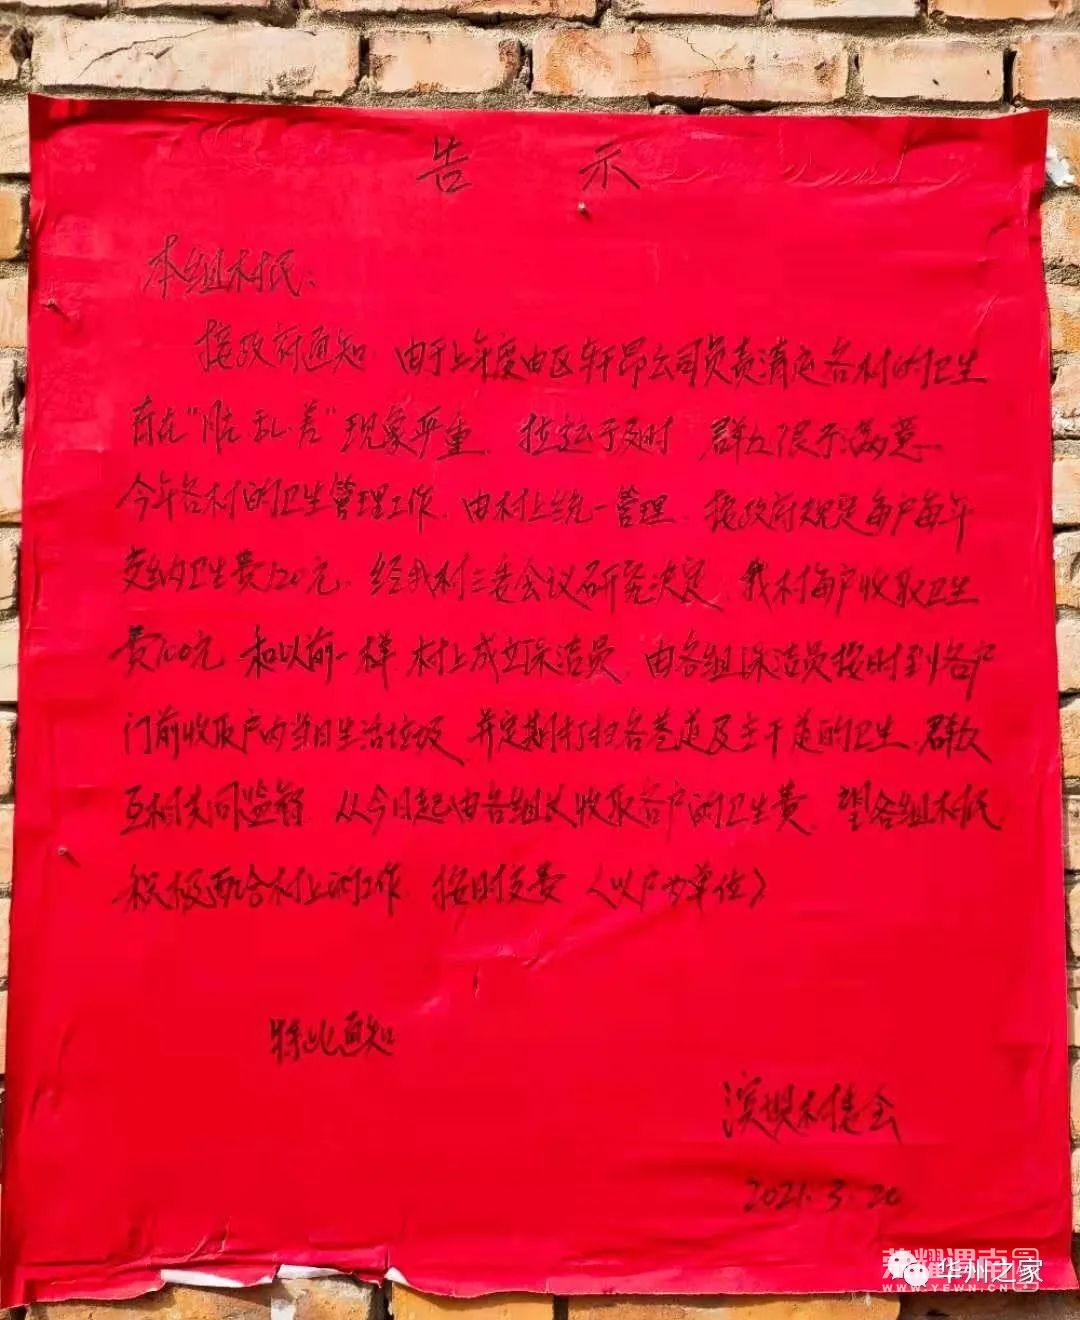 告 示
本组村民:
接政府通知 由于上年度由区轩昂公司负责清运各村的卫生
存在"脏乱差"现象严重 拉运不及时 群众很不满意
今年各村的卫生管理工作 由村上统一管理 按政府规定每户每年
交纳卫生费120元 经我村三委会议研究决定 我村每户收取卫生
费100元 和以前一样 村上成立保洁员 由各组保洁员按时到各户
门前收取户内当日生活垃圾 并定期打扫各巷道及主干道的卫生 群众
互相共同监督 从今日起由各组长收取各户的卫生费 望各组村民
积极配合村上的工作 按时交费 (以户为单位)
特此通知
滨坝村委会
2021.3.20
荣耀渭南
WWW.YEWN.CN
华州之家